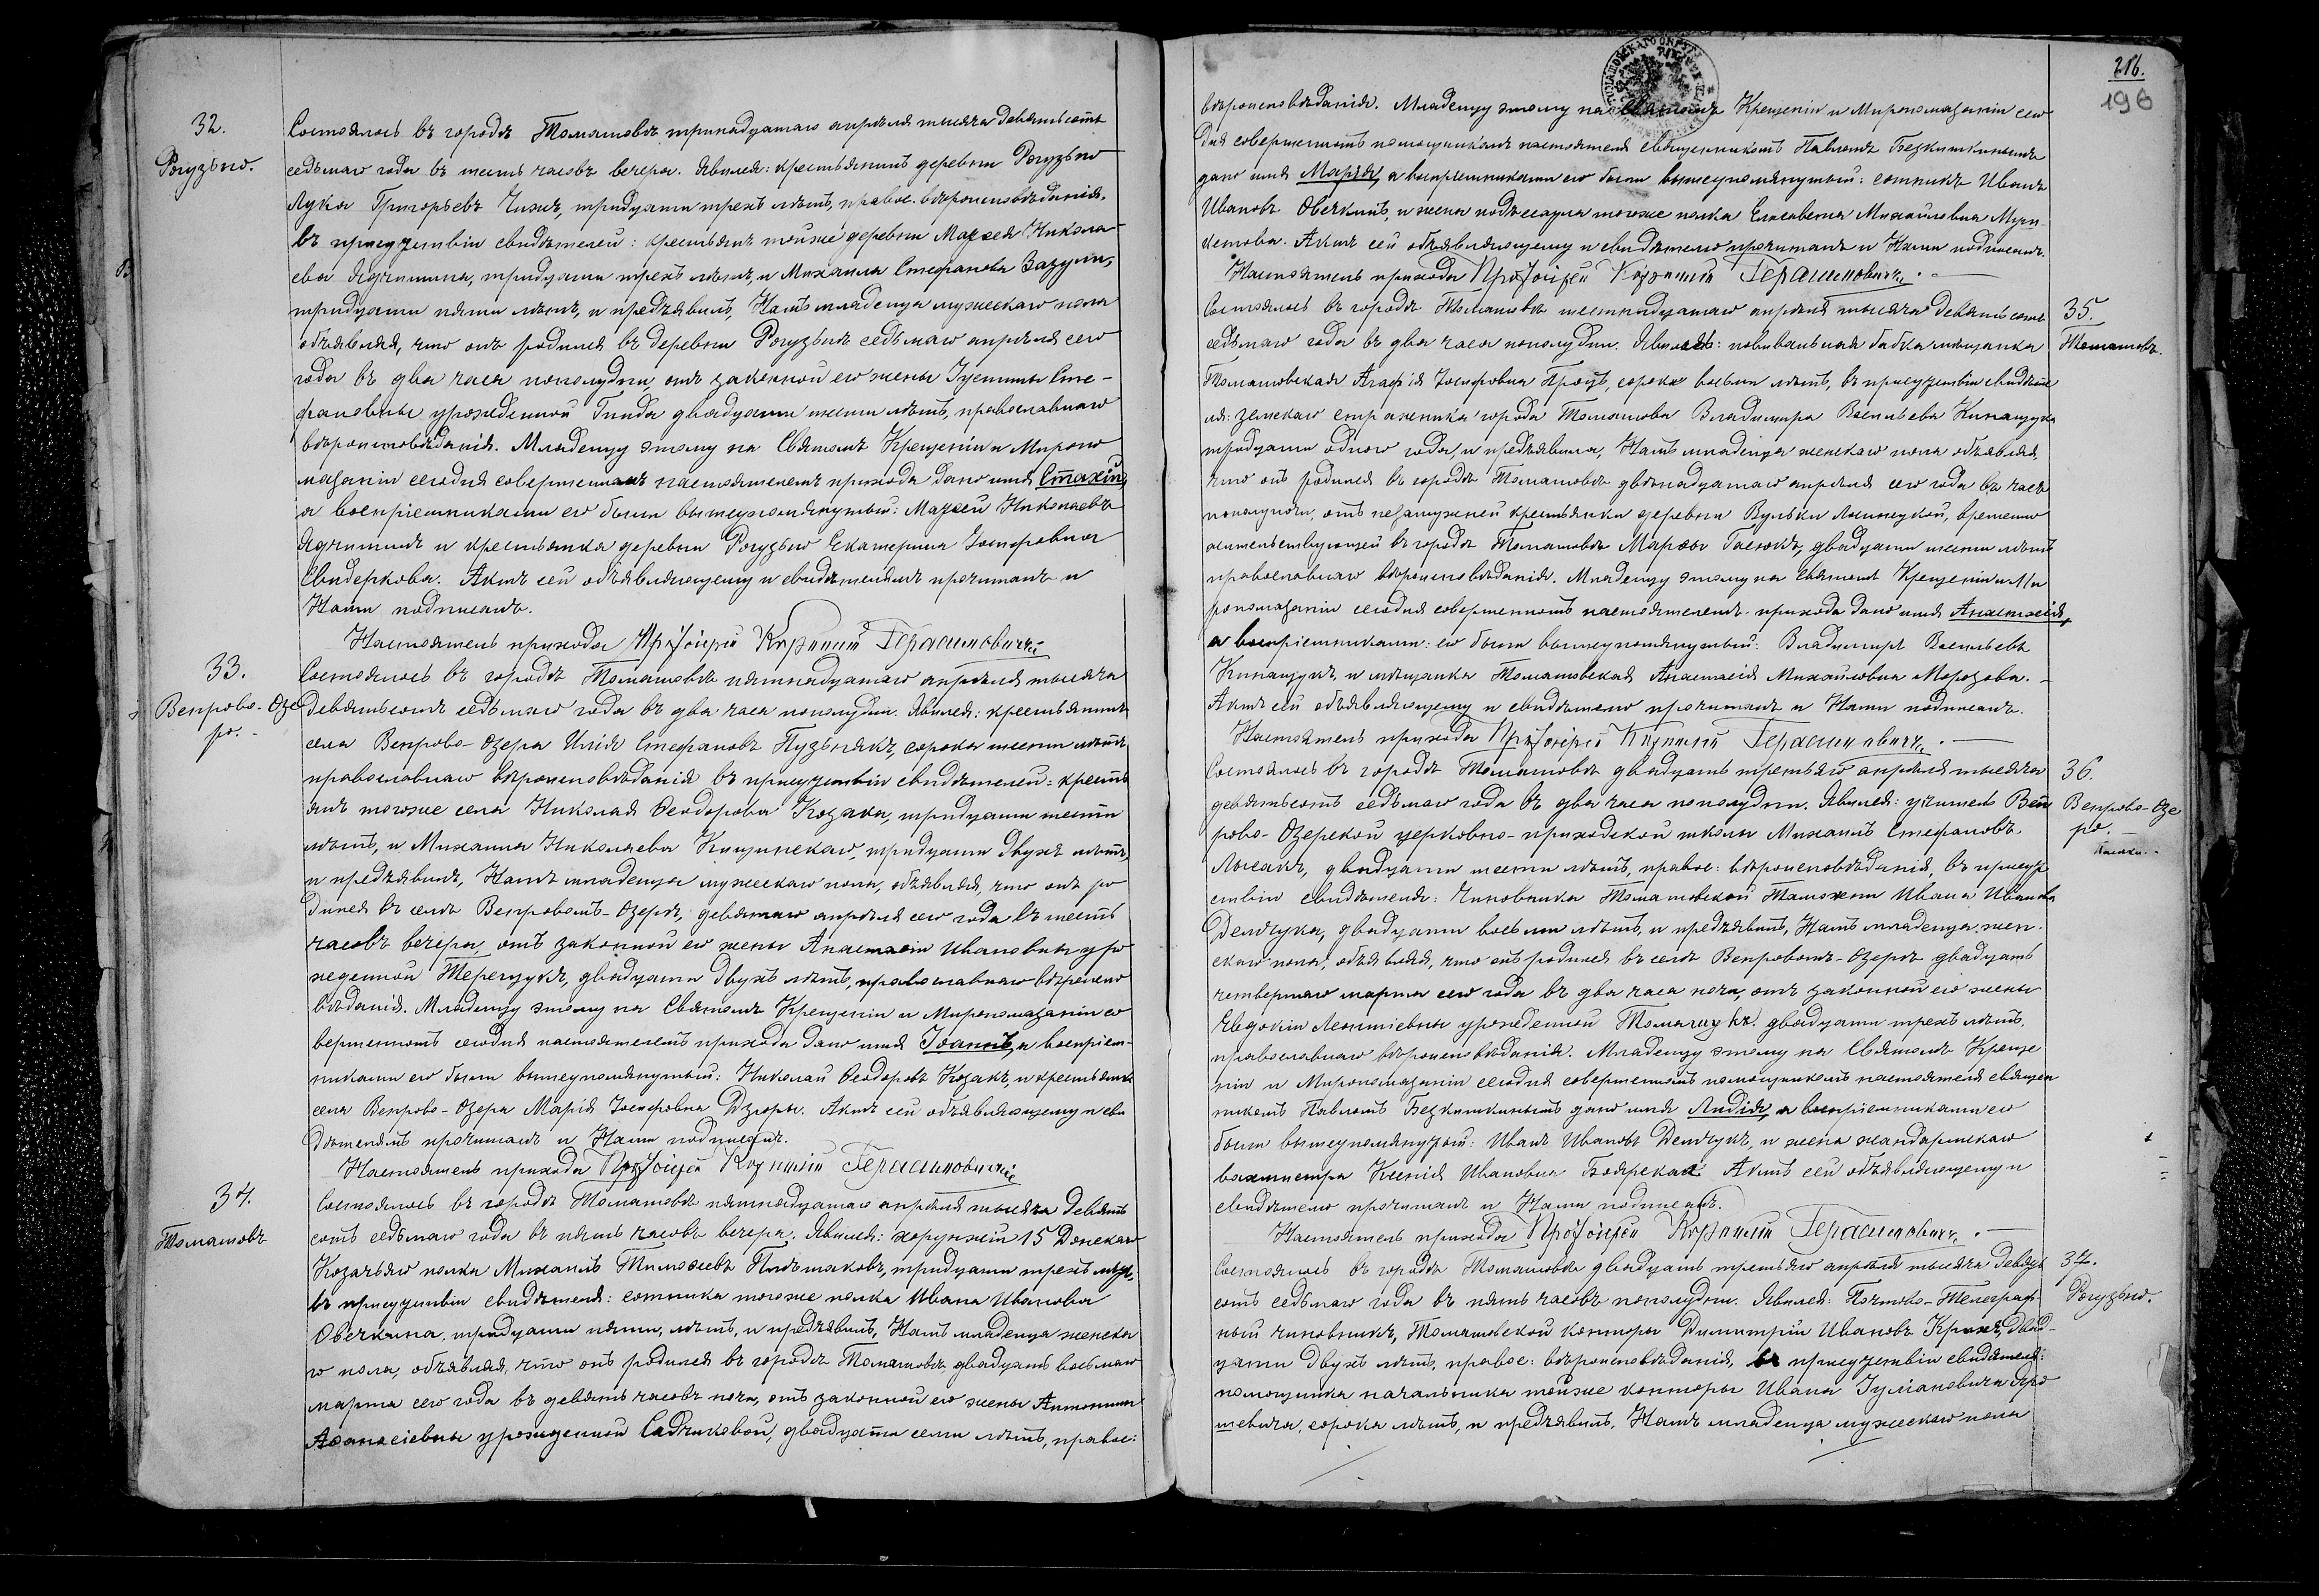 32.
Рогузьно.
Состоялось въ городѣ Томашовѣ тринадцатаго апрѣля тысяча девятьсотъ
седьмаго года въ шесть часовъ вечера. Явился: крестьянинъ деревни Рогузьно
Лука Григорьевъ Чижъ, тридцати трехъ лѣтъ, правос. вѣроисповѣданія,
въ присутствіи свидѣтелей: крестьянъ тойже деревни Матѳея Никола-
ева Ядчишина, тридцати трехъ лѣтъ, и Михаила Стефанова Вазули,
тридцати пяти лѣтъ, и предъявилъ Намъ младенца мужескаго пола
объявляя, что онъ родился въ деревни Рогузьнѣ седьмаго апрѣля сего
года въ два часа пополудни, отъ законной его жены Іустины Сте-
фановны урожденной Гинда двадцати шести лѣтъ, православнаго
вѣроисповѣданія. Младенцу этому на Святомъ Крещеніи и Миропо
мазаніи сегодня совершенномъ настоятелемъ прихода дано имя Стахій,
а воспріемниками его были вышеупомянутый: Матѳей Николаевъ
Ядчишинъ и крестьянка деревни Рогузьно Екатерина Іосифовна
Свидеркова. Актъ сей объявляющему и свидѣтелямъ прочитанъ и
Нами подписанъ.
Настоятель прихода Протоіерей Корнилій Герасимовичъ
33.
Вепрово-Озе
ро.
Состоялось въ городѣ Томашовѣ пятнадцатаго апрѣля тысяча
девятьсотъ седьмаго года въ два часа пополудни. Явился: крестьянинъ
села Вепрово-Озера Илія Стефановъ Пузьнякъ, сорока шести лѣтъ,
православнаго вѣроисповѣданія въ присутствіи свидѣтелей: кресть
янъ тогоже села Николая Ѳеодорова Козака, тридцати шести
лѣтъ, и Михаила Николаева Кицинскаго, тридцати двухъ лѣтъ,
и предъявилъ, Намъ младенца мужескаго пола, объявляя, что онъ ро
дился въ селѣ Вепровомъ-Озерѣ, девятаго апрѣля сего года въ шесть
часовъ вечера, отъ законной его жены Анастасіи Ивановны уро
жденной Терещукъ, двадцати двухъ лѣтъ, православнаго вѣроиспо
вѣданія. Младенцу этому на Святомъ Крещеніи и Миропомазаніи со
вершенномъ сегодня настоятелемъ прихода дано имя Іоаннъ, а воспріем-
никами его были вышеупомянутый: Николай Ѳеодоровъ Козакъ, и крестьянка
села Вепрово-Озера Марія Іосифовна Дзюры. Актъ сей объявляющему и сви
дѣтелямъ прочитанъ и Нами подписанъ.
Настоятель прихода Протоіерей Корнилій Герасимовичъ
34.
Томашовъ
Состоялось въ городѣ Томашовѣ пятнадцатаго апрѣля тысяча девять
сотъ седьмаго года въ пять часовъ вечера. Явился: хорунжій 15 Донскаго
Козачьяго полка Михаилъ Тимоѳеевъ Плѣшаковъ, тридцати трехъ лѣтъ,
въ присутствіи свидѣтеля: сотника тогоже полка Ивана Иванова
Овечкина, тридцати пяти, лѣтъ, и предъявилъ, Намъ младенца женска
го пола, объявляя, что онъ родился въ городѣ Томашовѣ двадцать восьмаго
марта сего года въ девять часовъ ночи, отъ законной его жены Антонины
Аѳанасіевны урожденной Садчиковой, двадцати семи лѣтъ, правос:
216.
196
вѣроисповѣданія. Младенцу этому на Святомъ Крещеніи и Миропомазаніи сего
дня совершенномъ помощникомъ настоятеля священникомъ Павломъ Безкишкинымъ
дано имя Марія, а воспріемниками его были вышеупомянутый: сотникъ Иванъ
Ивановъ Овечкинъ, и жена подъесаула тогоже полка Елисавета Михайловна
Актъ сей объявляющему и свидѣтелю прочитанъ и Нами подписанъ.
Настоятель прихода Протоіерей Корнилій Герасимовичъ.
35.
Томашовъ.
Состоялось въ городѣ Томашовѣ шестнадцатаго апрѣля тысяча девятьсотъ
седьмаго года въ два часа пополудни. Явилась: повивальная бабка мѣщанка
Томашовская Агафія Іосифовна Проць, сорока восьми лѣтъ, въ присутствіи свидѣте
ля: земскаго стражника города Томашова Владиміра Васильева Кинащука
тридцати одного года, и предъявила, Намъ младенца женскаго пола объявляя,
что онъ родился въ городѣ Томашовѣ двѣнадцатаго апрѣля сего года въ часъ
пополуночи, отъ незамужней крестьянки деревни Вульки Лосинецкой, временно
жительствующей въ городѣ Томашовѣ Марѳы Гасюкъ, двадцати шести лѣтъ
православнаго вѣроисповѣданія. Младенцу этому на Святомъ Крещеніи и Ми
ропомазаніи сегодня совершенномъ настоятелемъ прихода дано имя Анастасія,
а воспріемниками: его были вышеупомянутый: Владиміръ Васильевъ
Кинащукъ и мѣщанка Томашовская Анастасія Михайловна Морозова.
Актъ сей объявляющему и свидѣтелю прочитанъ и Нами подписанъ.
Настоятель прихода Протоіерей Корнилій Герасимовичъ.
36.
Вепрово-Озе
ро.
Состоялось въ городѣ Томашовѣ двадцать третьяго апрѣля тысяча
девятьсотъ седьмаго года въ два часа пополудни. Явился: учитель Веп
рово-Озерской церковно-приходской школы Михаилъ Стефановъ
Лысакъ, двадцати шести лѣтъ, правос: вѣроисповѣданія, въ присут
ствіи свидѣтеля: чиновника Томашовской Таможни Ивана Иванова
Демчука, двадцати восьми лѣтъ, и предъявилъ, Намъ младенца жен-
скаго пола, объявляя, что онъ родился въ селѣ Вепровомъ-Озерѣ двадцать
четвертаго марта сего года въ два часа ночи, отъ законной его жены
Евдокіи Леонтіевны урожденной Томащукъ. двадцати трехъ лѣтъ,
православнаго вѣроисповѣданія. Младенцу этому на Святомъ Креще
ніи и Миропомазаніи сегодня совершенномъ помощникомъ настоятеля священ
никомъ Павломъ Безкишкинымъ дано имя Лидія, а воспріемниками его
были вышеупомянутый: Иванъ Ивановъ Демчукъ, и жена жандармскаго
вахмистра Ксенія Ивановна Боярская. Актъ сей объявляющему и
свидѣтелю прочитанъ и Нами подписанъ.
Настоятель прихода Протоіерей Корнилій Герасимовичъ.
37.
Рогузьно.
Состоялось въ городѣ Томашовѣ двадцать третьяго апрѣля тысяча девять
сотъ седьмаго года въ пять часовъ пополудни. Явился: Почтово-Телеграф-
ный чиновникъ, Томашовской конторы Димитрій Ивановъ двад-
цати двухъ лѣтъ, правос: вѣроисповѣданія, въ присутствіи свидѣтеля:
помощника начальника тойже конторы Ивана Іуліановича Яро
шевича, сорока лѣтъ, и предъявилъ, Намъ младенца мужескаго пола